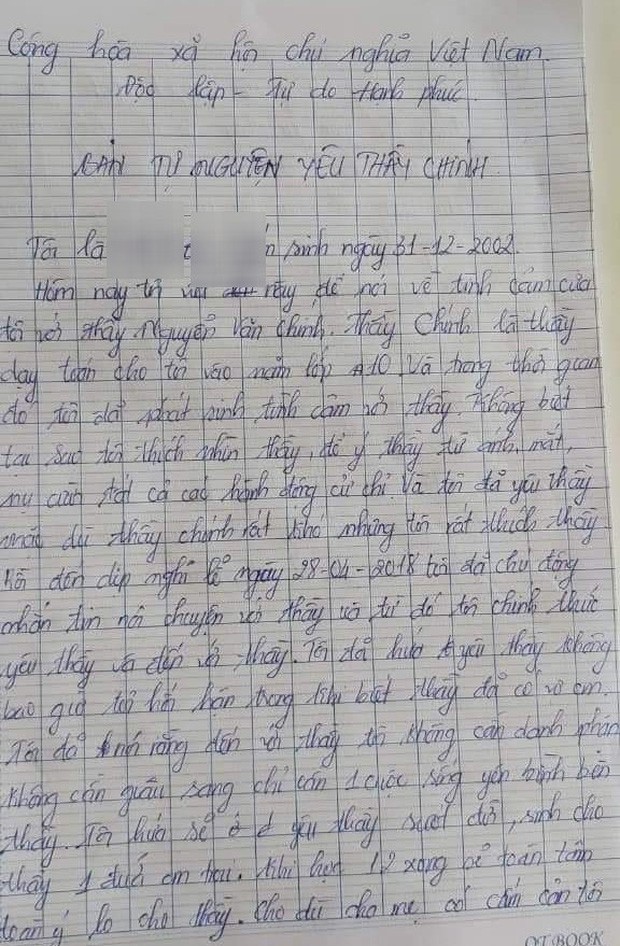 Cộng hòa xã hội chủ nghĩa Việt Nam.
Độc lập - Tự do Hạnh phúc.
BẢN TỰ NGUYỆN YÊU THẦY CHÍNH
Tôi là t n sinh ngày 31-12-2002.
Hôm nay tôi này để nói về tình cảm của
tôi với thầy Nguyễn Văn Chính. Thầy Chính là thầy
dạy toán cho tôi vào năm lớp 10. Và trong thời gian
đó tôi đã phát sinh tình cảm với thầy. Không biết
tại sao tôi thích nhìn thầy, để ý thầy từ ánh mắt,
nụ cười tất cả các hành động cử chỉ. Và tôi đã yêu thầy
mặc dù thầy chính rất khó nhưng tôi rất thích thầy.
đến dịp nghỉ lễ ngày 28-04-2018 tôi đã chủ động
nhắn tin nói chuyện với thầy và từ đó tôi chính thức
yêu thầy và đến với thầy. Tôi đã hứa yêu thầy không
bao giờ hối hận trong khi biết thầy đã có vợ con.
Tôi đã nói rằng đến với thầy tôi không cần danh phận
không cần giàu sang chỉ cần 1 cuộc sống yên bình bên
thầy. Tôi hứa sẽ ở yêu thầy suốt đời, sinh cho
thầy 1 đứa con trai. Khi học 12 xong sẽ toàn tâm
toàn ý lo cho thầy. Cho dù cha mẹ có cấm cản tôi
QT.BOOK